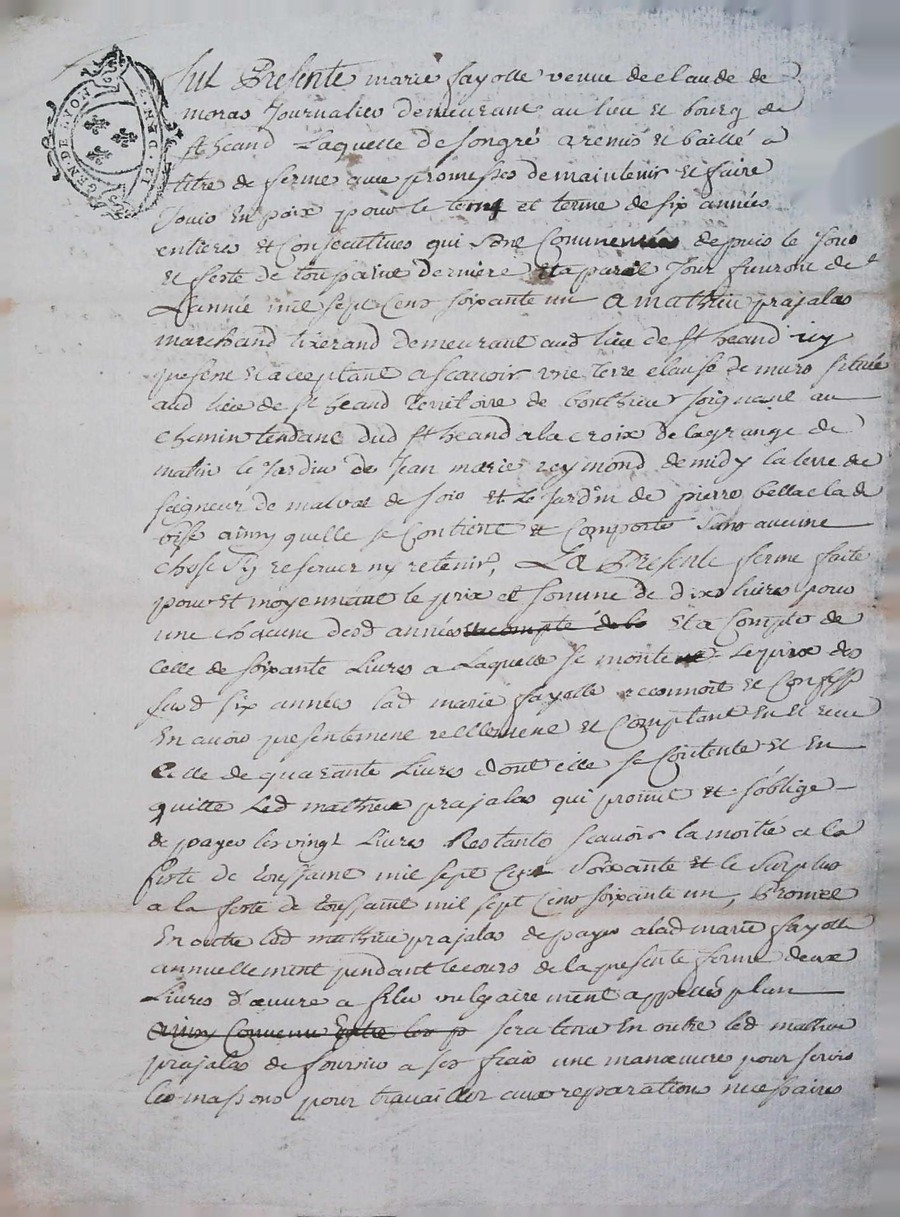 GEN. DE LYON 12. DEN. 2
fut Presente marie fayolle veuve de claude de
moras Journalier demeurant au lieu et bourg de
st heand Laquelle de son gré a remis et baillé a
titre de ferme avec promesses de maintenir et faire
Jouir En paix pour le temps et terme de six années
entieres et Consecutives qui sont Commencées depuis le Jour
et feste de toussaint derniere et a pareil Jour finiront de
L'année mil sept Cens soixante un a mathieu prajalas
marchand tixerand demeurant aud lieu de st heand icy
present et acceptant a scavoir une terre clause de murs situeé
aud lieu de st heand territoire de Joignant au
chemin tendant dud st heand a la croix de la grange de
matin le Jardin de Jean marie reymond de midy la terre du
seigneur de malval de soir et le Jardin de pierre de
bise ainsy quelle se Contient et Comporte sans aucune
chose sy reserver ny retenir, La Presente ferme faite
pour et moyennant le prix et somme de dix livres pour
une chacune desd années et a Compte de
celle de soixante Livres a Laquelle se monte Le prix des
susd six années lad marie fayolle reconnoit et Confesse
En avoir presentement reellement et Comptant Eu et receu
Celle de quarante Livres dont elle se Contente et En
quitte Led mathieu prajalas qui promet et s'oblige
de payer les vingt Livres Restants scavoir la moitié a la
feste de toussaint mil sept Cens soixante et le surplus
a la feste de toussaint mil sept Cens soixante un, Promet
En outre led mathieu prajalas de payer a lad marie fayolle
annuellement pendant le cours de la presente ferme deux
Livres d'œuvre a filer vulgairement appellés plan
ainsy Convenu Entre les p sera tenu En outre led mathieu
prajalas de fournir a ses frais une manœuvre pour servir
les massons pour travailler aux reparations necessaires